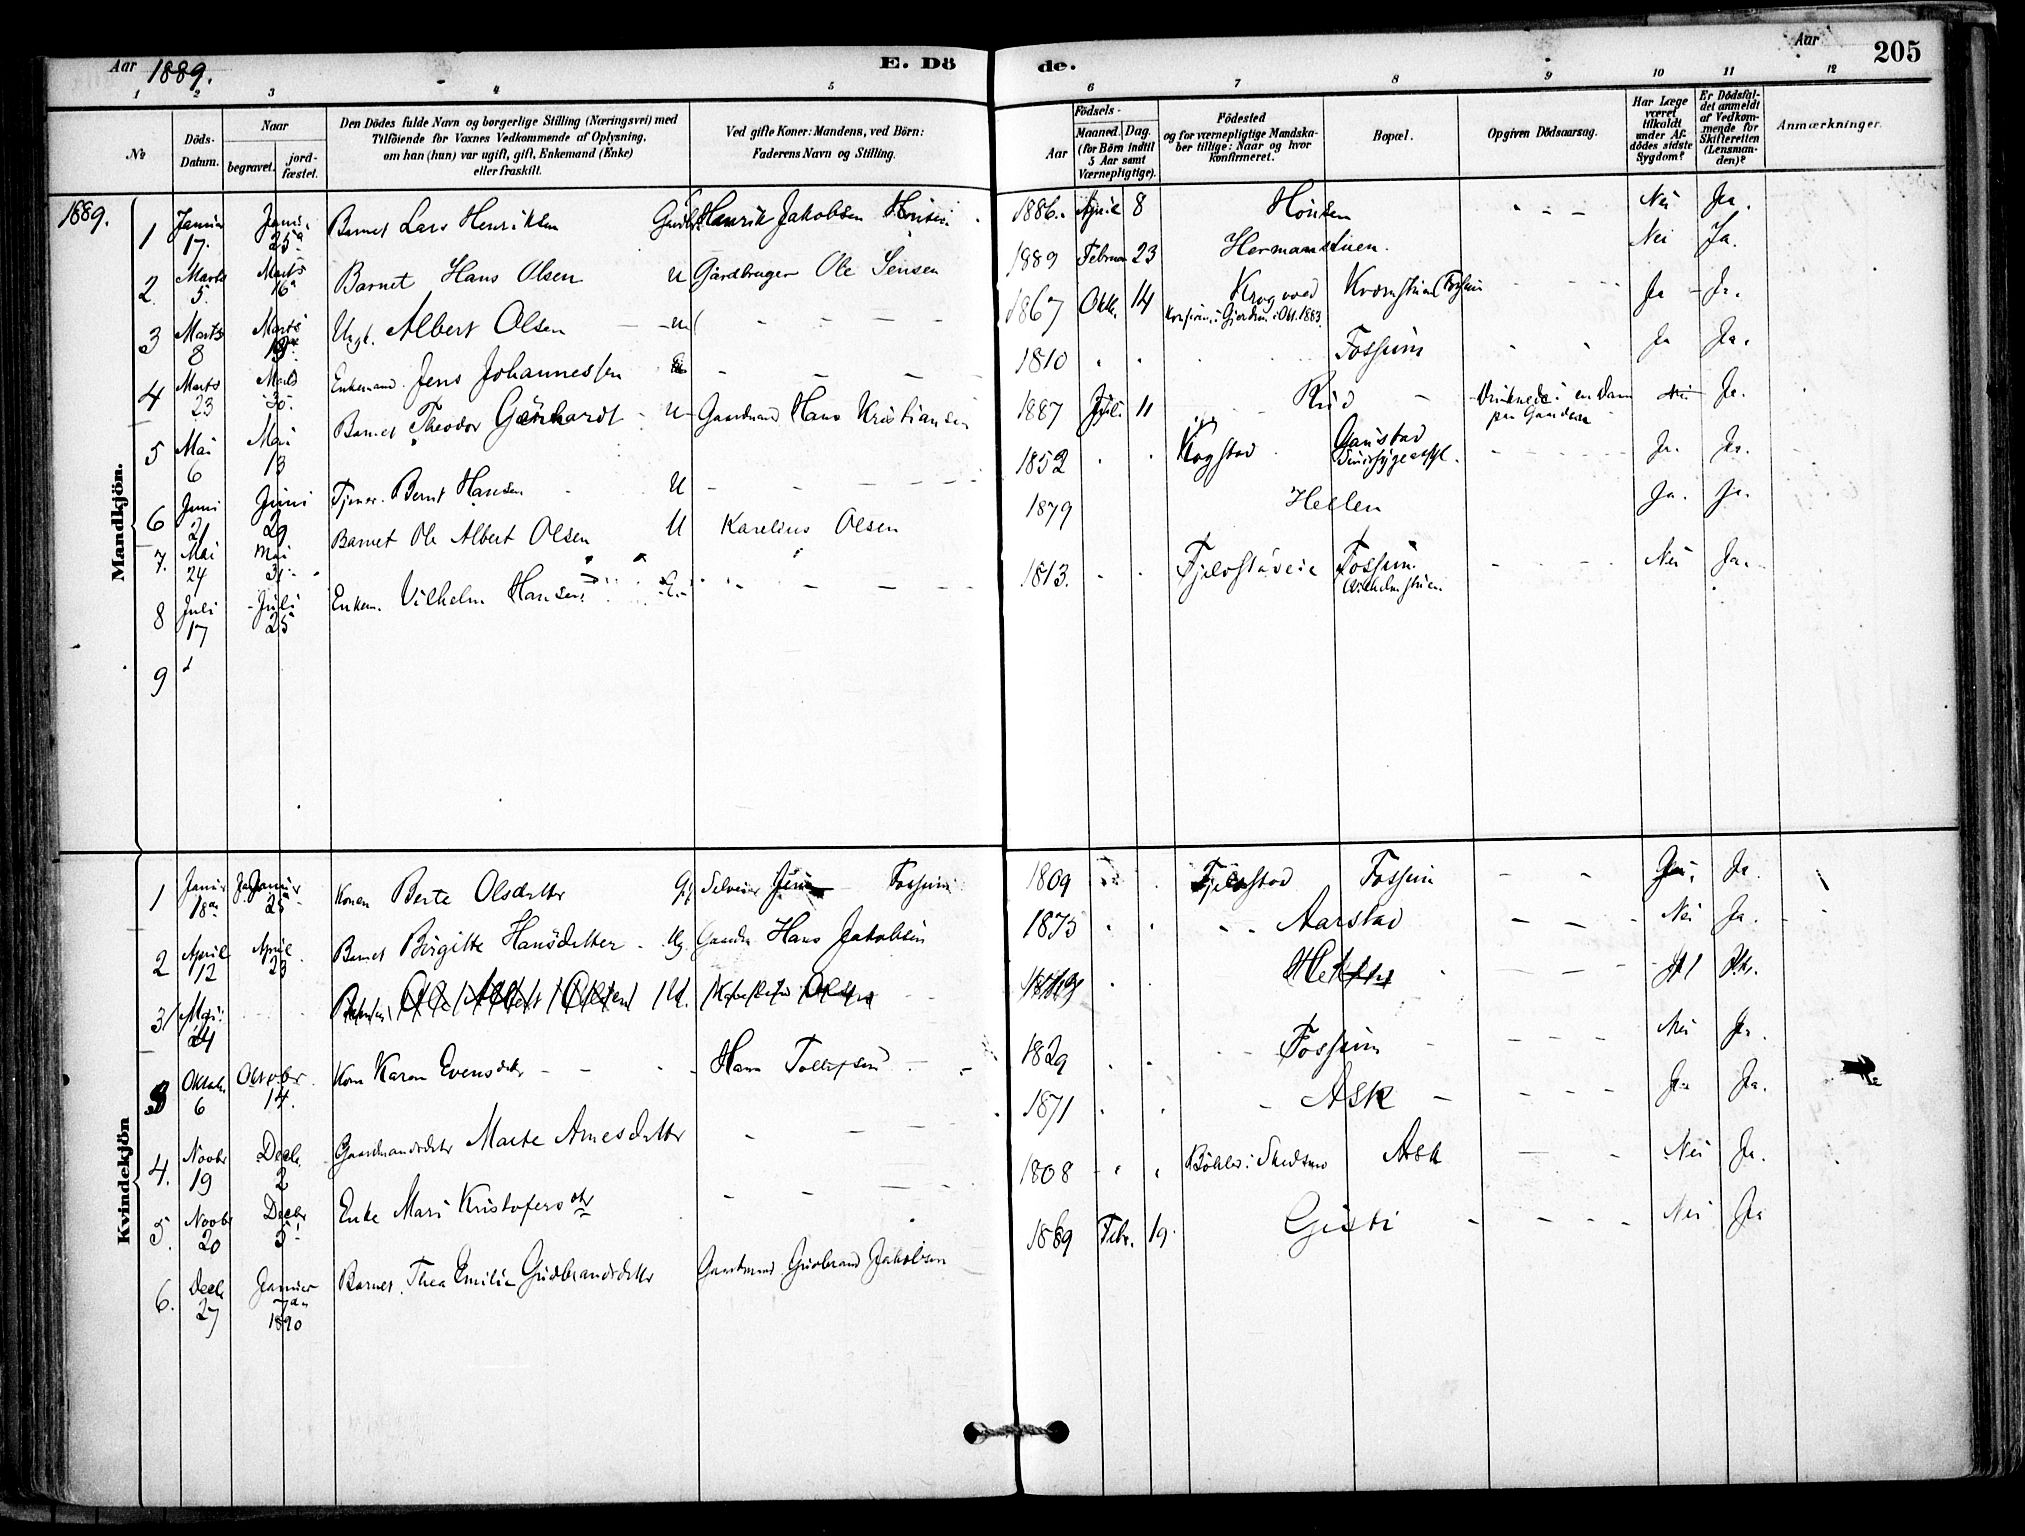 Aar 1889.
E. Dö
de.
Aar
205
1 2 3 4 5 6 7 8 9 10 11 12
No
Döds-
Datum.
Naar
begravet.
jord-
fæstet.
Den Dödes fulde Navn og borgerlige Stilling (Næringsvei) med
Tilföiende for Voxnes Vedkommende af Oplysning,
om han (hun) var ugift, gift, Enkemand (Enke)
eller fraskilt.
Ved gifte Koner: Mandens, ved Börn:
Faderens Navn og Stilling.
Födsels-
Aar
Maaned. Dag.
(for Börn indtil
5 Aar samt
Værnepligtige).
Födested
og for værnepligtige Mandska-
ber tillige: Naar og hvor
konfirmeret.
Bopæl.
Opgiven Dödsaarsag.
Har Læge
været
tilkaldt
under Af-
dödes sidste
Sygdom?
Er Dödsfal-
det anmeldt
af Vedkom-
mende for
Skifteretten
(Lensman-
den)?
Anmærkninger.
1889.
Mandkjön.
1 Januar 17. Janu. 25 Barnet Lars Henriksen Henrik Jakobsen 1886. April 8 Hönsen Nei Ja.
2. Marts 5. Marts 16 Barnet Hans Olsen U Gårdbruger Ole Jensen 1889 Februar 23 Hermanstuen. Nei Ja.
3 Marts 8 Marts Ungk. Albert Olsen U 1867 Oktb. 14 Krogvold Ja Ja.
Konfirm. i Gjerdrum Okt. 1883.
4 Marts 23 Marts 30. Enkemand. Jens Johannessen 1810 Fossum Ja Ja.
5 Mai 6 Mai 13 Barnet Theodor Gerhardt U Gaardmand Hans Kristiansen 1887 Juli 11 Rud Druknede i en Dam Nei Ja.
paa Gaarden
6 Juni 21 Juni 29 Tjener. Bernt Hansen U 1852 Kogstad Gaustad Ja. Ja.
Sindssygeasyl.
7. Mai 24 Mai 31 Barnet Ole Albert Olsen U Karelius Olsen 1879 Hellen Ja. Ja.
8 Juli 17 Juli 25 Enkem. Vilhelm Hansen E. 1813. Fjelstadeie Fossum. Nei Ja.
Wilhelmstuen.
9
Kvindekjön
1 Januar 18 Januar 25 Konen Berte Olsdatter G. Fossum 1809 Fjelstad Fossum Ja.
2 April 12 April 23 Barnet Birgitte Hansdatter Ug. Gaardm. Hans Jakobsen 1875 Aarstad Nei Ja.
3 Mai 24 Barnet Ole Albert Olsen U. Karelius Olsen 1879 Ja.
3 Oktober 6 Oktober 14. Kone Karen Evensdatter Hans Tollefsen 1829 Fossum Nei Ja.
4. Novbr 19 Decb. 2 Gaardmandsdatter Marte Arnesdatter 1871 Ask Ja Ja.
5. Novbr 20 Decbr 5 Enke Mari Kristofersdtr 1808 Böhler i Skedsmo Ask Nei Ja.
6. Decb. 27 Januar 7de 1890 Barnet. Thea Emilie Gudbrandsdatter Gaardmand Gudbrand Jakobsen 1889 Febr. 19. Gisti Nei Ja